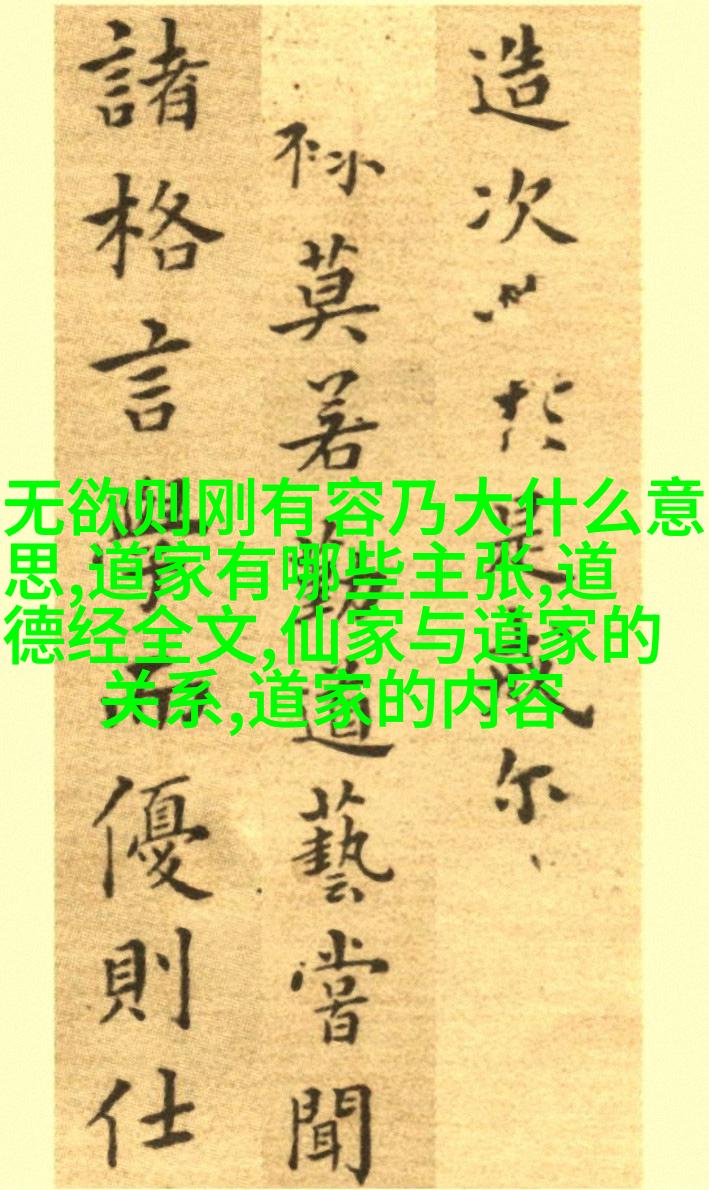 无欲则刚有容乃大什么意
思,道家有哪些主张,道
德经全文,仙家与道家的
关系,道家的内容
造次於是尔
莫若道藝嘗聞
諸格言學而優則仕